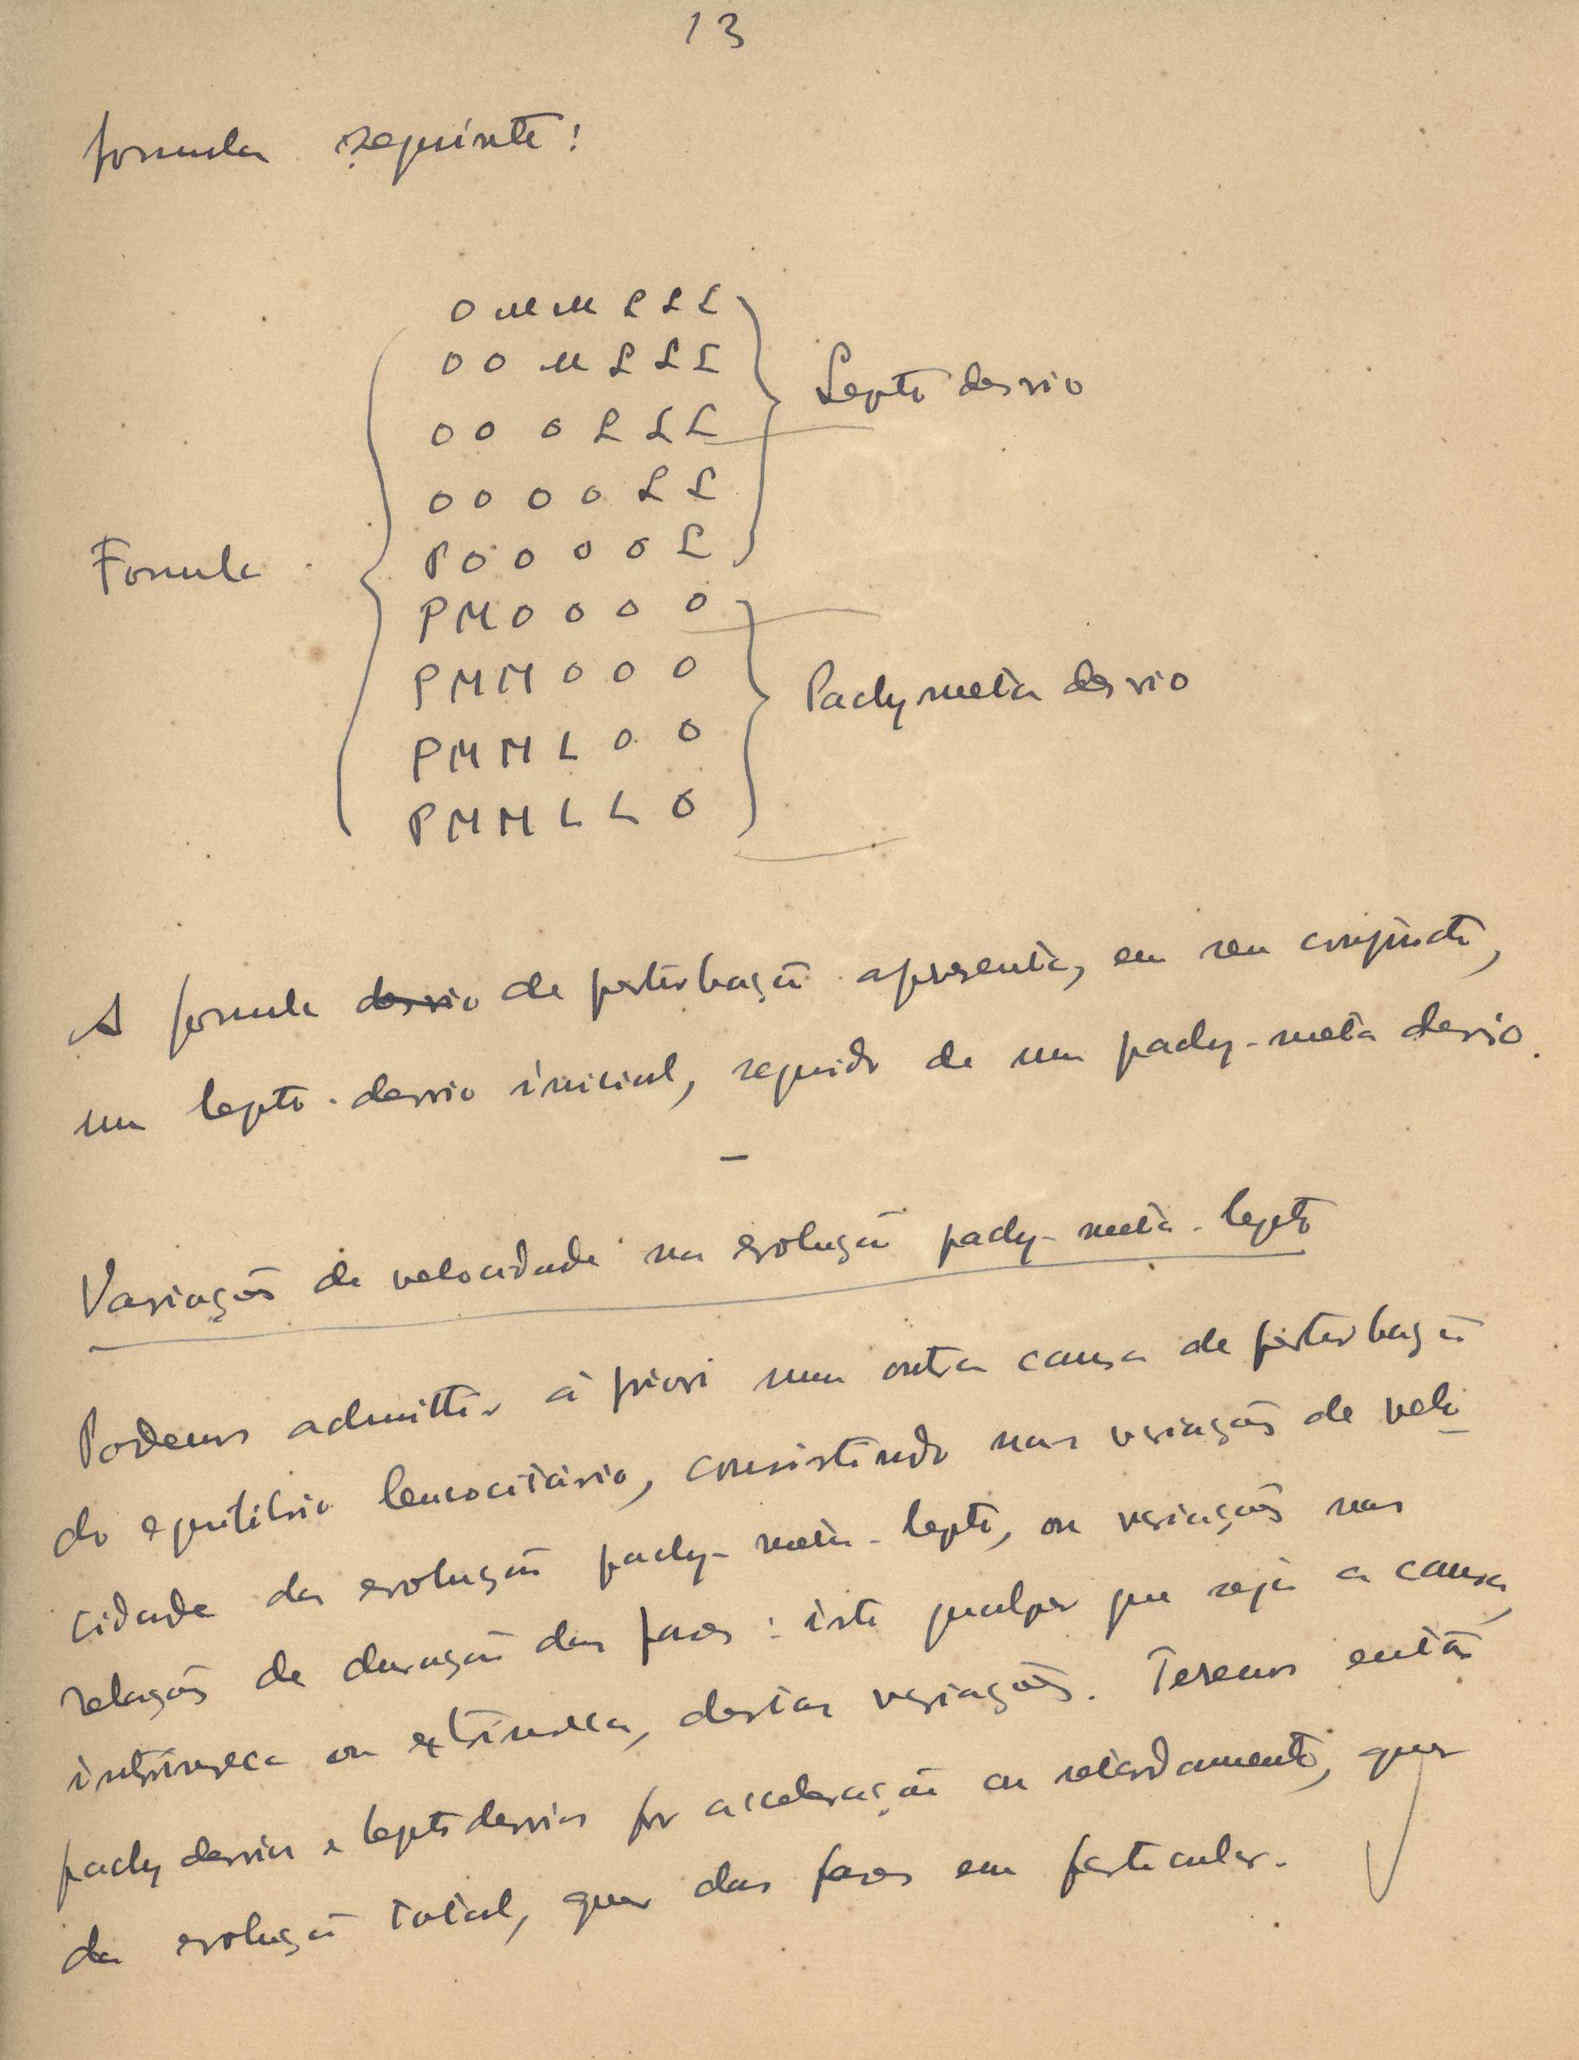 13
formula seguinte:
O M M L L L
O O M L L L
Lepto desvio
O O O L L L
O O O O L L
P O O O O L
Formula
P M O O O O
P M M O O O
Pachy meta desvio
P M M L O O
P M M L L O
A formula desvio de perturbação apresenta, em seu conjuncto,
um lepto-desvio inicial, seguido de um pachy-meta desvio.
—
Variações de velocidade na evolução pachy-meta-lepto
Podemos admittir à priori uma outra causa de perturbação
do equilibrio leucocitário, consistindo nas variações de velo
cidade da evolução pachy-meta-lepto, ou variações nas
relações de duração das fases: isto qualquer que seja a causa,
intrinseca ou extrinseca, destas variações. Teremos então
pachy desvios e lepto desvios por acceleração ou retardamento, quer
da evolução total, quer das fases em particular.